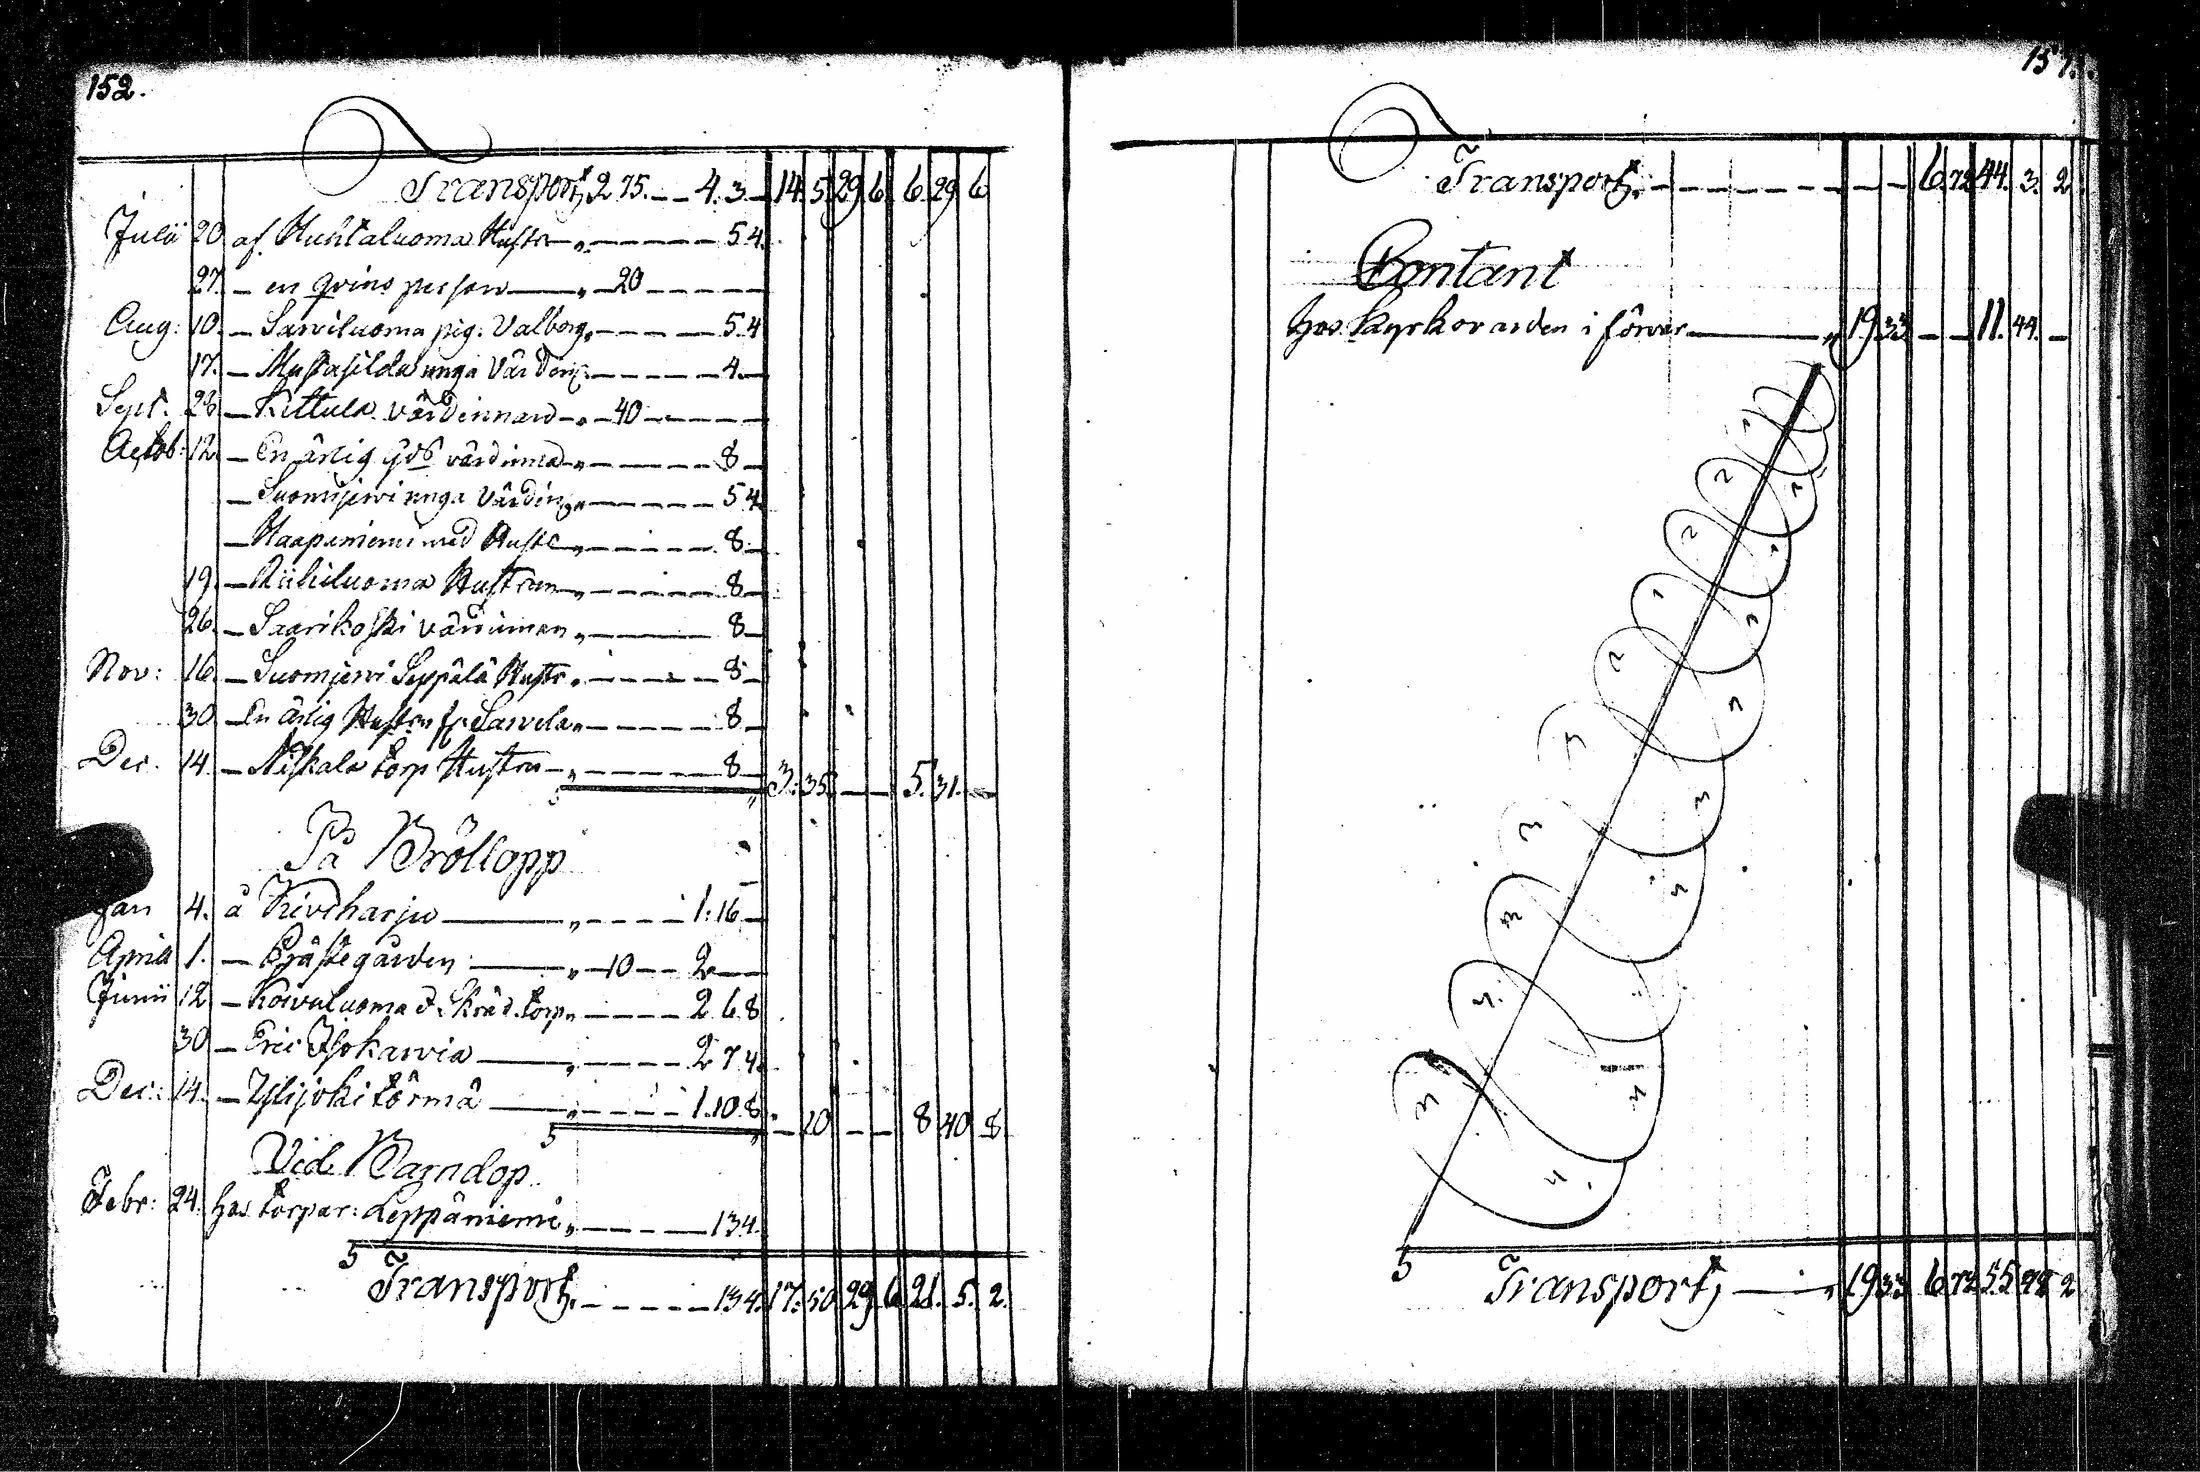 152.
Transport, 2 75. — 4. 3. 14. 5. 29. 6. 6. 29. 6
Julii 20. af Huhtaluoma Hustr „ — 5. 4.
27. — en qvins person — „ — 20 —
Aug: 10. — Sarviluoma pig: Valborg „ — 5. 4
17. — unga Värdin: — 4. —
Sept. 28. — Kittula värdinnan „ — 40 —
Actob: 12. — En ärlig värdinna „ — 8 —
— Suomijerwi unga Värdin: „ — 5 4
— Haapaniemi med Hustr „ — 8. —
19. — Riihiluoma Hustrun „ — 8 —
26. — Saarikoski värdinnan „ — 8 —
Nov: 16. — Suomijerwi Seppälä Hustr „ — 8 —
30. — En ärlig Hustru fr. Sarvela „ — 8 —
Dec. 14. — Niskala torp Hustru — „ — 8 — 3. 35. — — 5. 31. —
På Bröllopp
Jan 4. å Kiviharju — „ — 1. 16 —
April 1. — Prästegården — „ — 10 — 2 —
Junii 12 — Koivuluoma torp „ — 2 6 8
30 — Eric Isokarvia — „ — 2 7 4.
Dec: 14. — Ylijoki törmä — „ — 1. 10. 8. — 20 — — 8 40 8
Vid Barndop
Febr: 24. hos torpar: Leppäniemi „ — 13 4.
Transport, — 13 4. 17. 50 29. 6. 21. 5. 2.
Transport, — 6. 72 44. 3. 2.
Contant
hos Kyrkovärden i förvar — „ 19. 33 — — 11. 44. —
Transport, — „ 19 33 6. 72. 55. 2